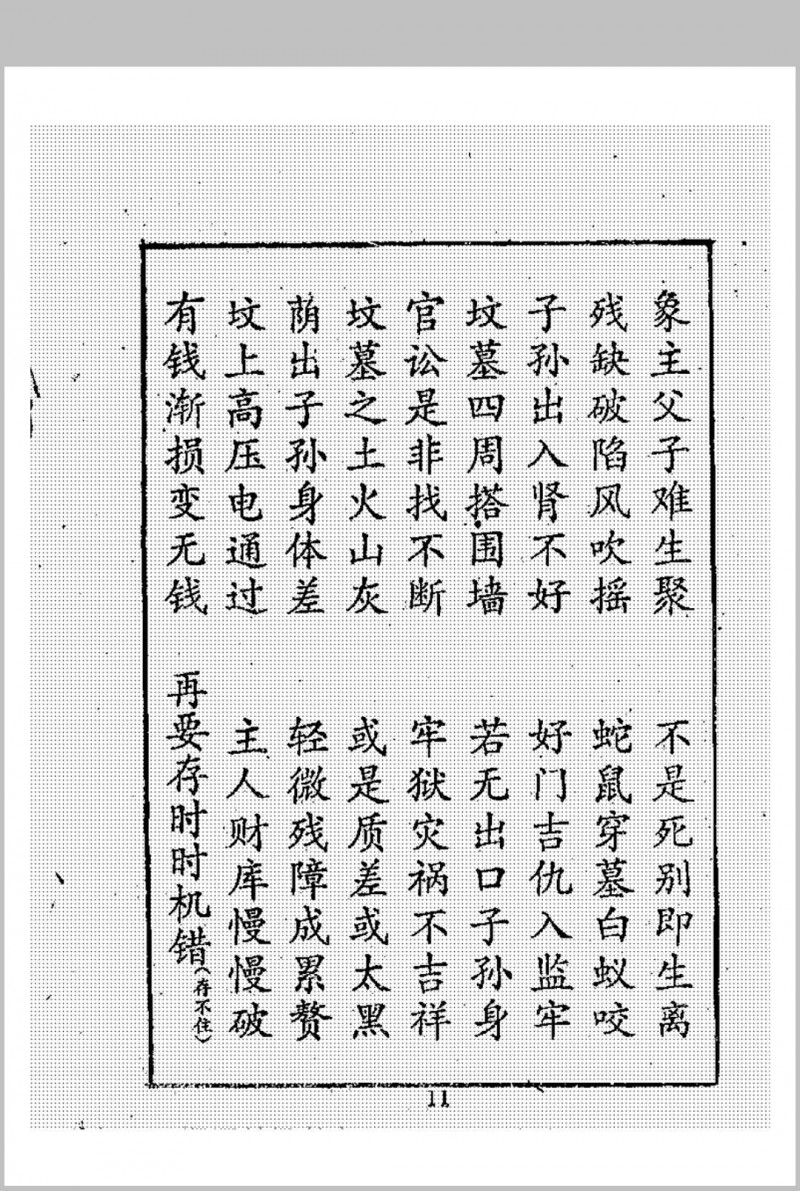 象主父子难生聚　不是死别即生离
残缺破陷风吹摇　蛇鼠穿墓白蚁咬
子孙出入肾不好　好门吉仇入监牢
坟墓四周搭围墙　若无出口子孙身
官讼是非找不断　牢狱灾祸不吉祥
坟墓之土火山灰　或是质差或太黑
荫出子孙身体差　轻微残障成累赘
坟上高压电通过　主人财库慢慢破
有钱渐损变无钱　再要存时时机错(存不住)
11